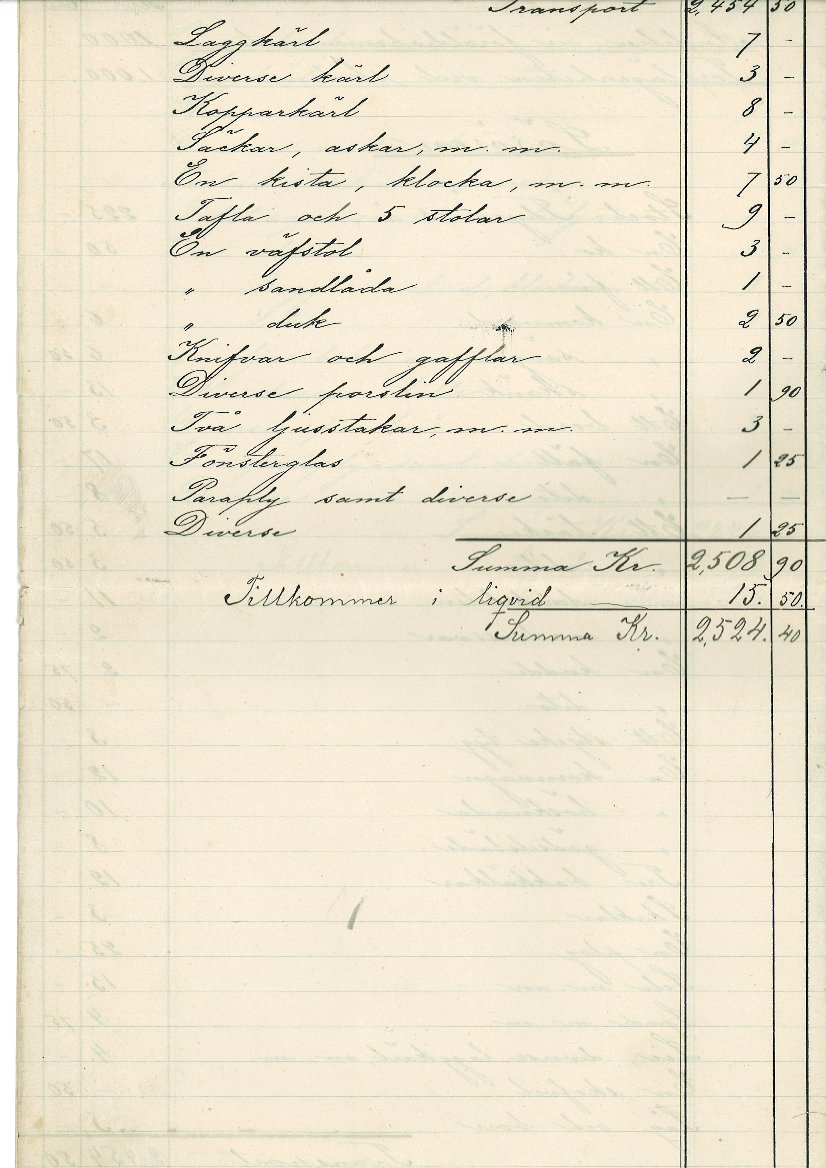 Transport 2,454 50
Laggkärl 7 -
Diverse kärl 3 -
Kopparkärl 8 -
Säckar, askar, m. m. 4 -
En kista, klocka, m. m. 7 50
Tafla och 5 stolar 9 -
En väfstol 3 -
" sandlåda 1 -
" duk 2 50
Knifvar och gafflar 2 -
Diverse porslin 1 90
Två ljusstakar, m. m. 3 -
Fönsterglas 1 25
Paraply samt diverse — —
Diverse 1 25
Summa Kr. 2,508 90
Tillkommer i liqvid 15. 50.
Summa Kr. 2,524. 40